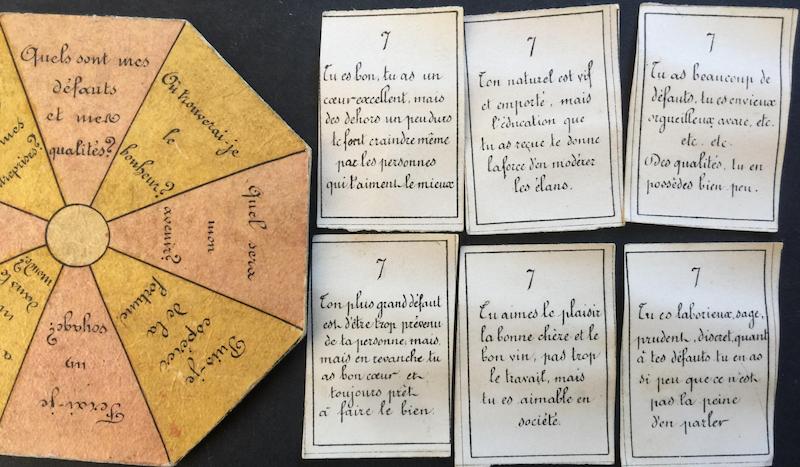 Quels sont mes
défauts
et mes
qualités?
Où trouverai-je
le
bonheur?
Quel sera
mon
avenir?
Puis-je
espérer
de la
fortune
Ferai-je
un
voyage?
dans le
monde?
7
Tu es bon, tu as un
cœur excellent, mais
des dehors un peu durs
te font craindre même
par les personnes
qui t'aiment le mieux
7
Ton naturel est vif
et emporté, mais
l'éducation que
tu as reçue te donne
la force d'en modérer
les élans.
7
Tu as beaucoup de
défauts, tu es envieux
orgueilleux, avare, etc.
etc. etc.
Des qualités, tu en
possèdes bien peu.
7
Ton plus grand défaut
est d'être trop prévenu
de ta personne, mais,
mais en revanche tu
as bon cœur et
toujours prêt
à faire le bien.
7
Tu aimes le plaisir
la bonne chère et le
bon vin, pas trop
le travail, mais
tu es aimable en
société.
7
Tu es laborieux, sage,
prudent, discret, quant
à tes défauts tu en as
si peu que ce n'est
pas la peine
d'en parler